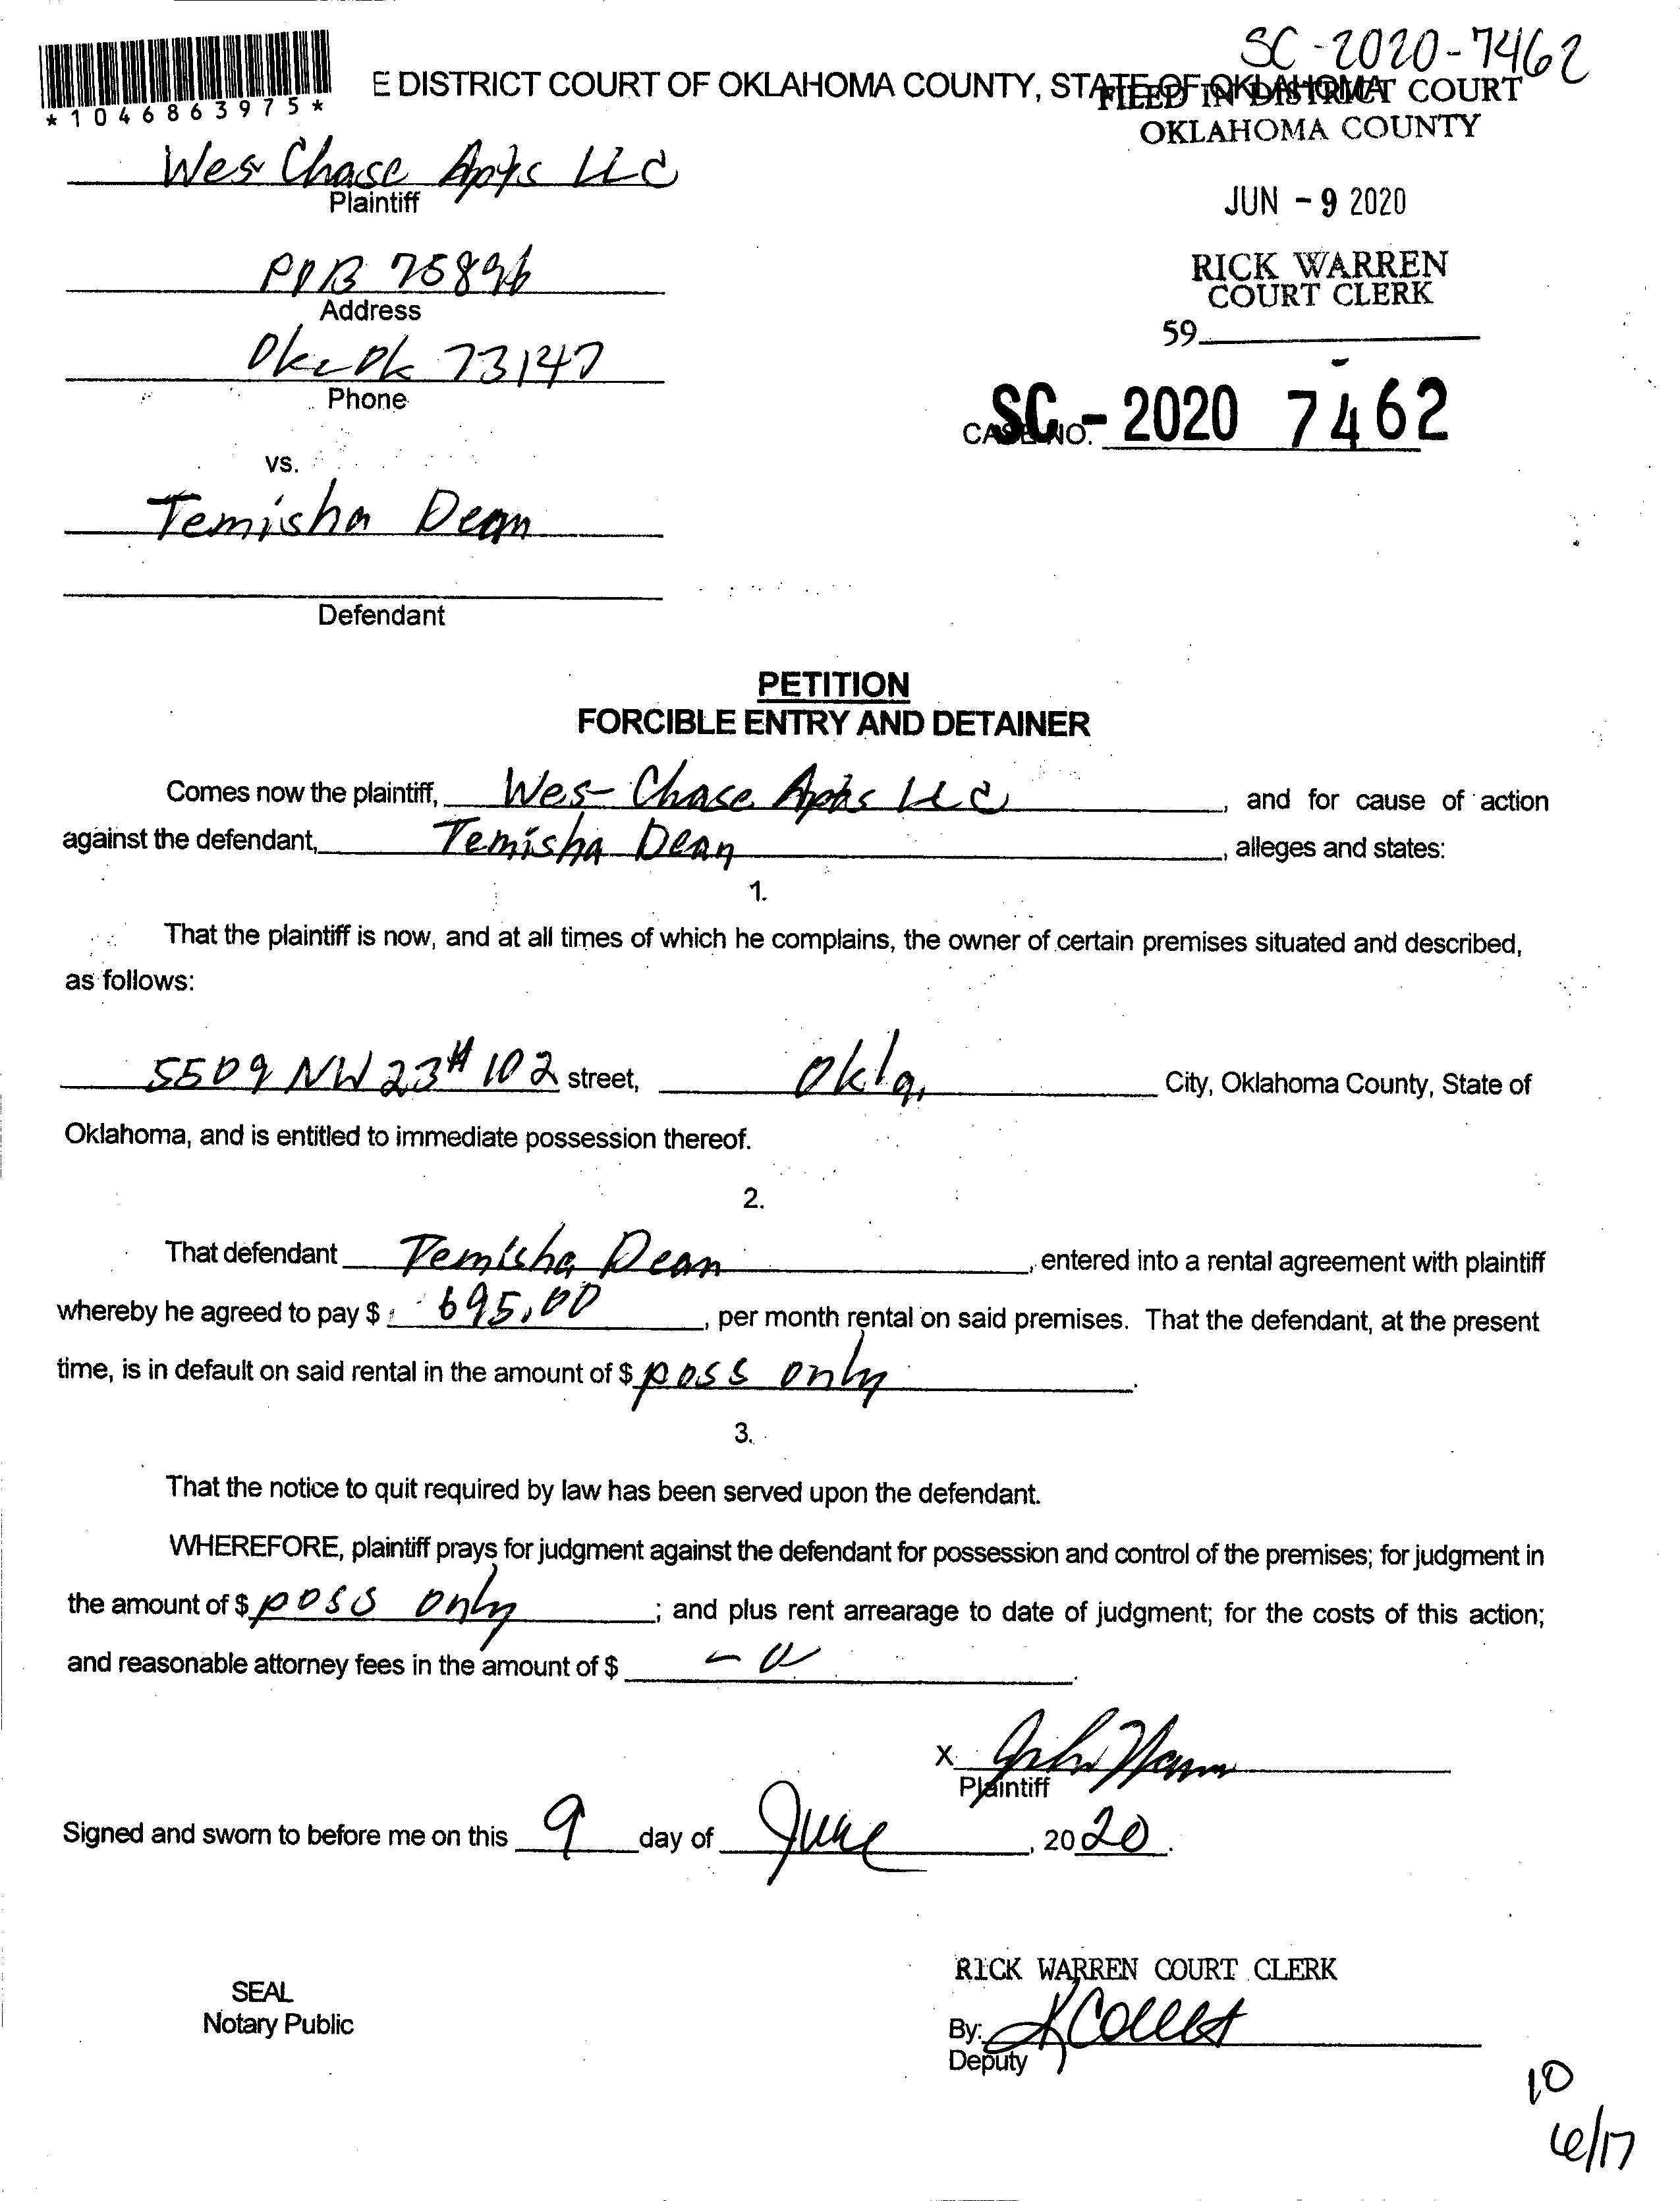 SC-2020-7462
*1046863975*
E DISTRICT COURT OF OKLAHOMA COUNTY, STATE OF OKLAHOMA
FILED IN DISTRICT COURT
OKLAHOMA COUNTY
Wes Chase Apts LLC
Plaintiff
JUN - 9 2020
POB 75896
Address
RICK WARREN
COURT CLERK
59
Okc Ok 73147
Phone
CASE NO. SC - 2020 7462
vs.
Temisha Dean
Defendant
PETITION
FORCIBLE ENTRY AND DETAINER
Comes now the plaintiff, Wes Chase Apts LLC, and for cause of action
against the defendant, Temisha Dean, alleges and states:
1.
That the plaintiff is now, and at all times of which he complains, the owner of certain premises situated and described,
as follows:
5509 NW 23 # 102 street, Okla, City, Oklahoma County, State of
Oklahoma, and is entitled to immediate possession thereof.
2.
That defendant Temisha Dean, entered into a rental agreement with plaintiff
whereby he agreed to pay $ 695.00, per month rental on said premises. That the defendant, at the present
time, is in default on said rental in the amount of $ poss only.
3.
That the notice to quit required by law has been served upon the defendant.
WHEREFORE, plaintiff prays for judgment against the defendant for possession and control of the premises; for judgment in
the amount of $ poss only; and plus rent arrearage to date of judgment; for the costs of this action;
and reasonable attorney fees in the amount of $ - 0.
X John
Plaintiff
Signed and sworn to before me on this 9 day of June, 2020.
RICK WARREN COURT CLERK
SEAL
Notary Public
By:
Deputy
10
6/17